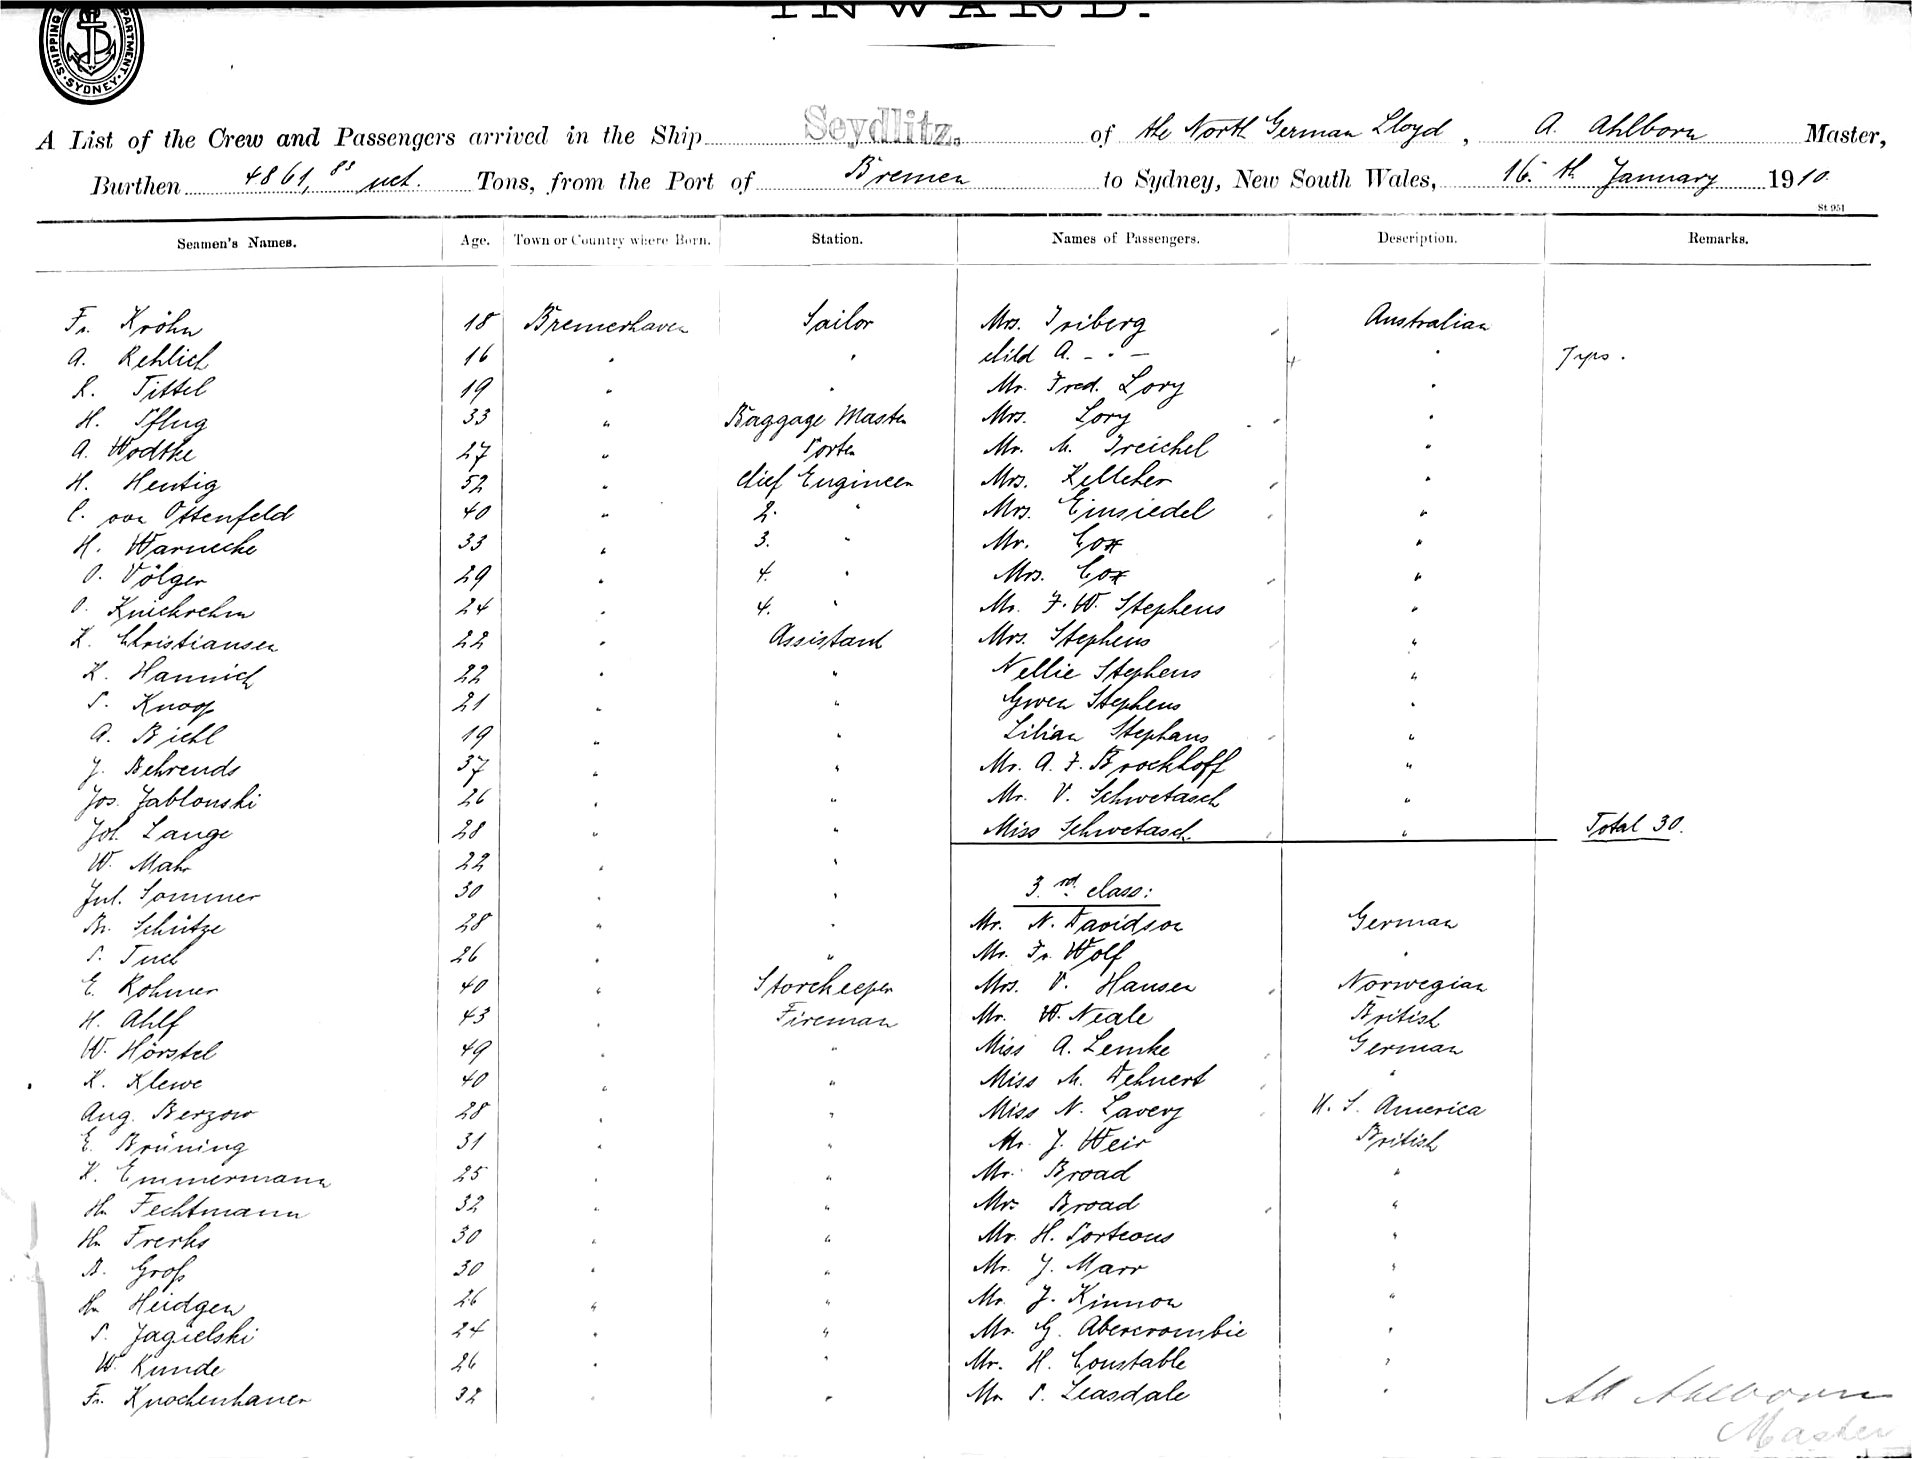 INWARD.
SHIPPING DEPARTMENT. SYDNEY.
A List of the Crew and Passengers arrived in the Ship Seydlitz. of the North German Lloyd, A. Ahlborn Master,
Burthen 4861,83 net. Tons, from the Port of Bremen to Sydney, New South Wales, 16th January 1910.
St 951
Seamen's Names. Age. Town or Country where Born. Station. Names of Passengers. Description. Remarks.
Fr. Kröhn 18 Bremerhaven Sailor Mrs. Triberg Australian
A. Rehlich 16 " " child A. - " - " 7 yrs.
R. Tittel 19 " " Mr. Fred. Lory "
H. Pflug 33 " Baggage Master Mrs. Lory "
A. Wodtke 27 " Porter Mr. M. Treichel "
H. Hentig 52 " chief Engineer Mrs. Kelleher "
C. von Ottenfeld 40 " 2. " Mrs. Einsiedel "
H. Warnecke 33 " 3. " Mr. Cox "
O. Völger 29 " 4. " Mrs. Cox "
O. Kniekrehm 24 " 4. " Mr. F. W. Stephens "
K. Christiansen 22 " Assistant Mrs. Stephens "
K. Hannich 22 " " Nellie Stephens "
P. Knoop 21 " " Gwen Stephens "
A. Biehl 19 " " Lilian Stephans "
J. Behrends 37 " " Mr. A. F. Brockhoff "
Jos. Jablonski 26 " " Mr. V. Schwetasch "
Joh. Lange 28 " " Miss Schwetasch "  Total 30.
W. Mahr 22 " "
Jul. Sommer 30 " " 3rd class:
Br. Schütze 28 " " Mr. N. Davidson German
P. Tuch 26 " " Mr. Fr. Wolf "
E. Rohmer 40 " Storekeeper Mrs. V. Hansen Norwegian
H. Ahlf 43 " Fireman Mr. W. Neale British
W. Hörstel 49 " " Miss A. Lemke German
K. Klewe 40 " " Miss M. Dehnert "
Aug. Berzow 28 " " Miss N. Lavery U. S. America
E. Brüning 31 " " Mr. J. Weir British
K. Emmermann 25 " " Mr. Broad "
Hn Fechtmann 32 " " Mrs Broad "
Hn Frerks 30 " " Mr. H. Porteous "
B. Groß 30 " " Mr. J. Marr "
Hn Heidgen 26 " " Mr. J. Kinnon "
P. Jagielski 24 " " Mr. G. Abercrombie "
W. Kunde 26 " " Mr. H. Constable "
Fr. Knochenhauer 32 " " Mr P. Leasdale "
Ad Ahlborn
Master